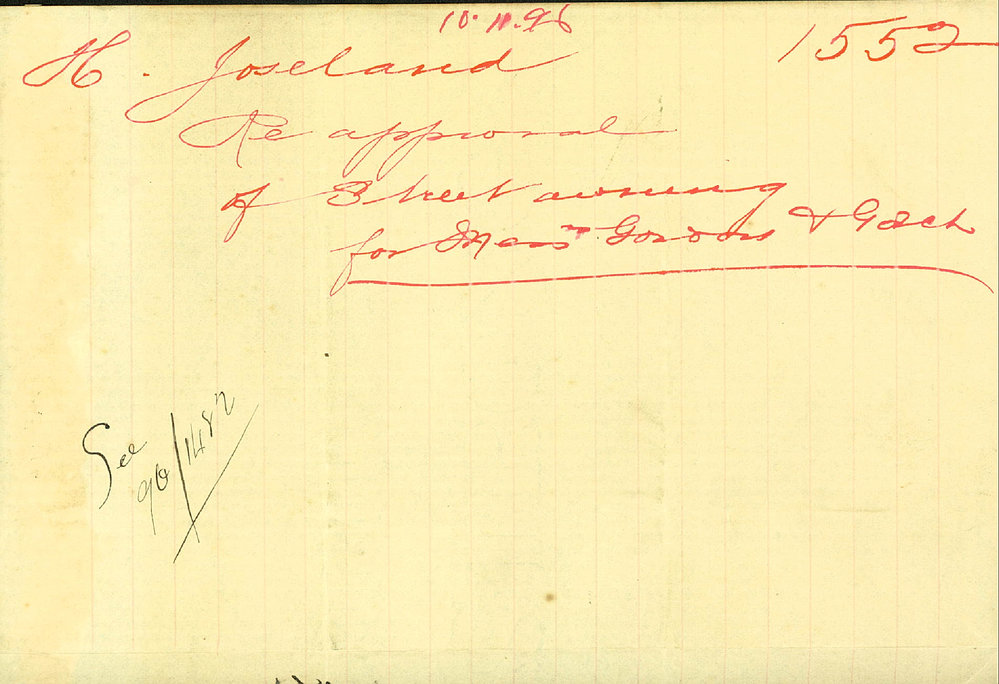 10.11.96
H. Joseland 1552
Re approval
of Street awning
for Messrs Gordon & Gotch
See
96/1482